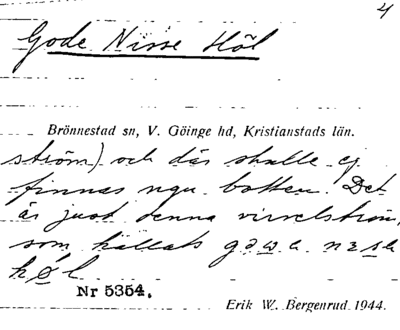 4
Gode Nisse Höl
Brönnestad sn, V. Göinge hd, Kristianstads län.
ström) och där skulle ej
finnas ngn botten. Det
är just denna virvelström,
som kallats
Nr 5354.
Erik W. Bergenrud 1944.